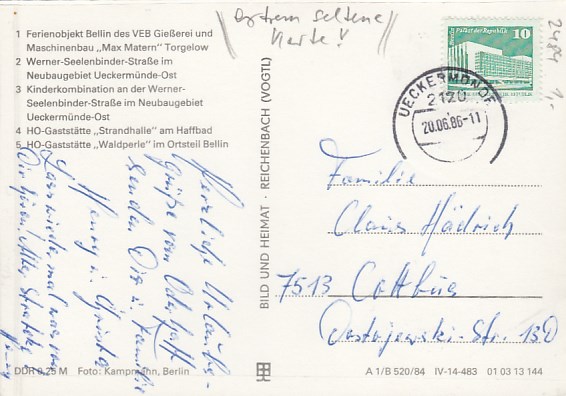 extrem seltene
Karte!
1 Ferienobjekt Bellin des VEB Gießerei und
Maschinenbau „Max Matern" Torgelow
2 Werner-Seelenbinder-Straße im
Neubaugebiet Ueckermünde-Ost
3 Kinderkombination an der Werner-
Seelenbinder-Straße im Neubaugebiet
Ueckermünde-Ost
4 HO-Gaststätte „Strandhalle" am Haffbad
5 HO-Gaststätte „Waldperle" im Ortsteil Bellin
Herzliche Urlaubs-
grüße vom Oderhaff
senden Dir u. Familie
Henry u.
Lass wieder mal was von
Dir hören! Alte
DDR 0,25 M Foto: Kampmann, Berlin
BILD UND HEIMAT · REICHENBACH (VOGTL)
Berlin Palast der Republik
10
UECKERMÜNDE
2120
20.06.86-11
2484
1,-
Familie
Claus Hädrich
7513 Cottbus
Dostojewski-Str. 13D
A 1/B 520/84 IV-14-483 01 03 13 144